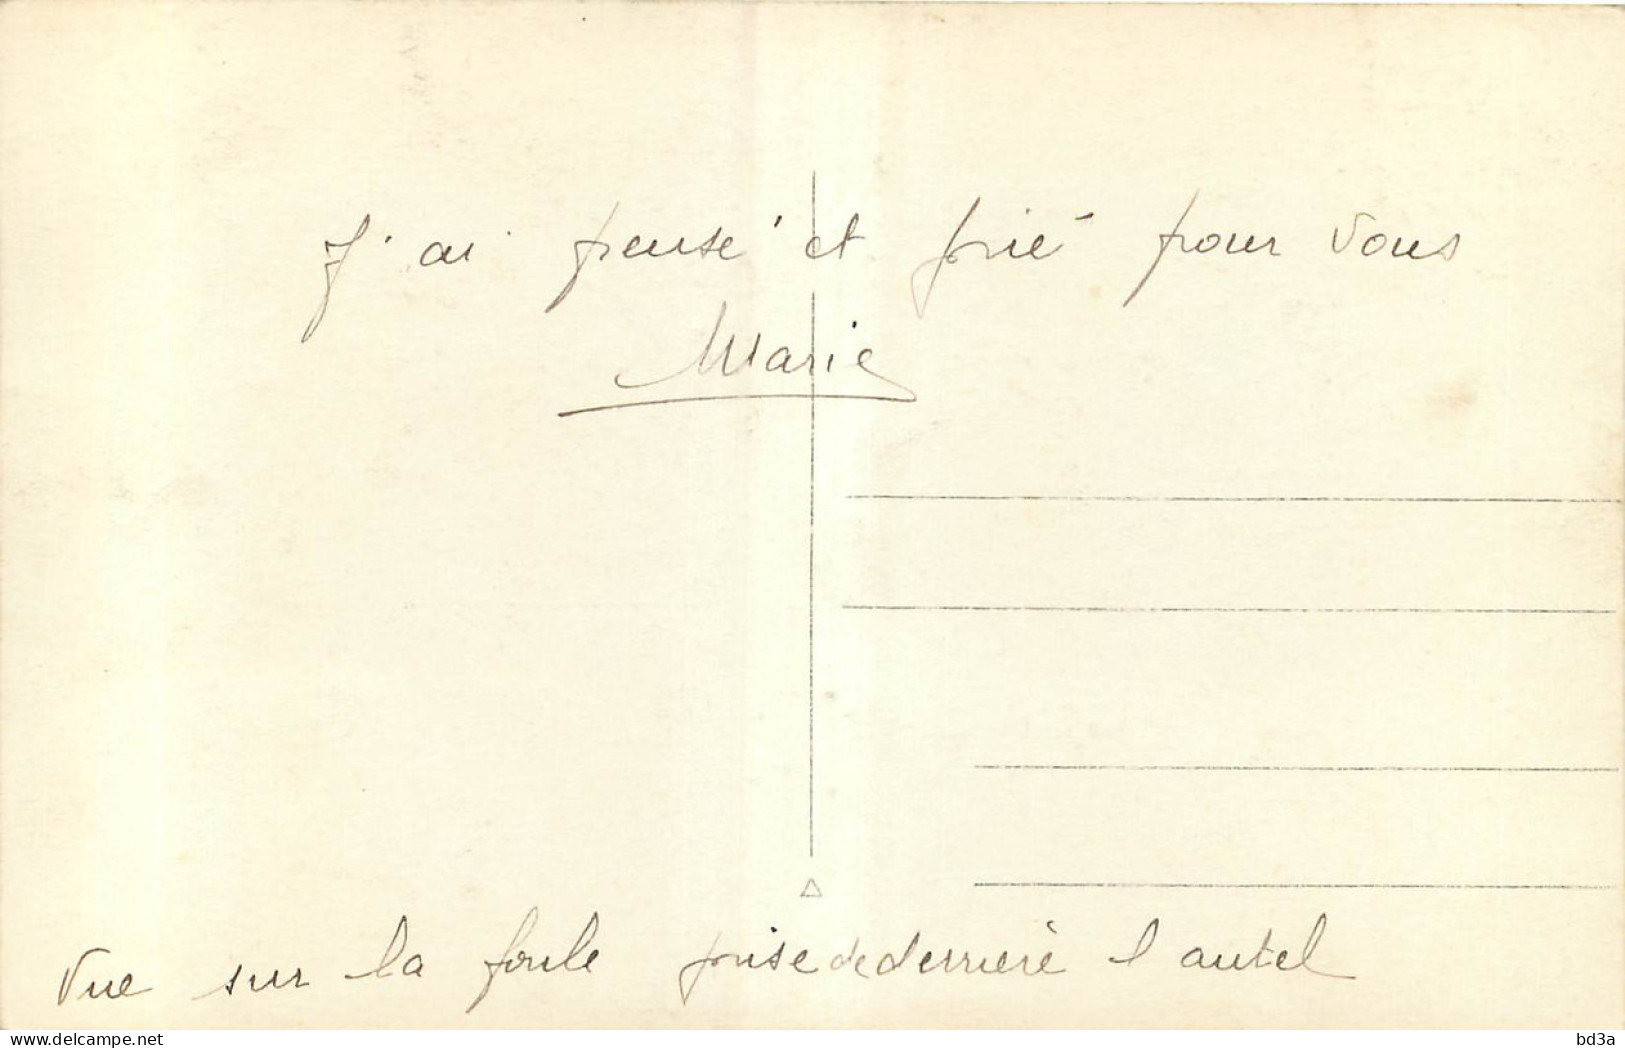 J'ai pensé et prié pour vous
Marie
Vue sur la foule prise de derrière l autel
www.delcampe.net
bd3a